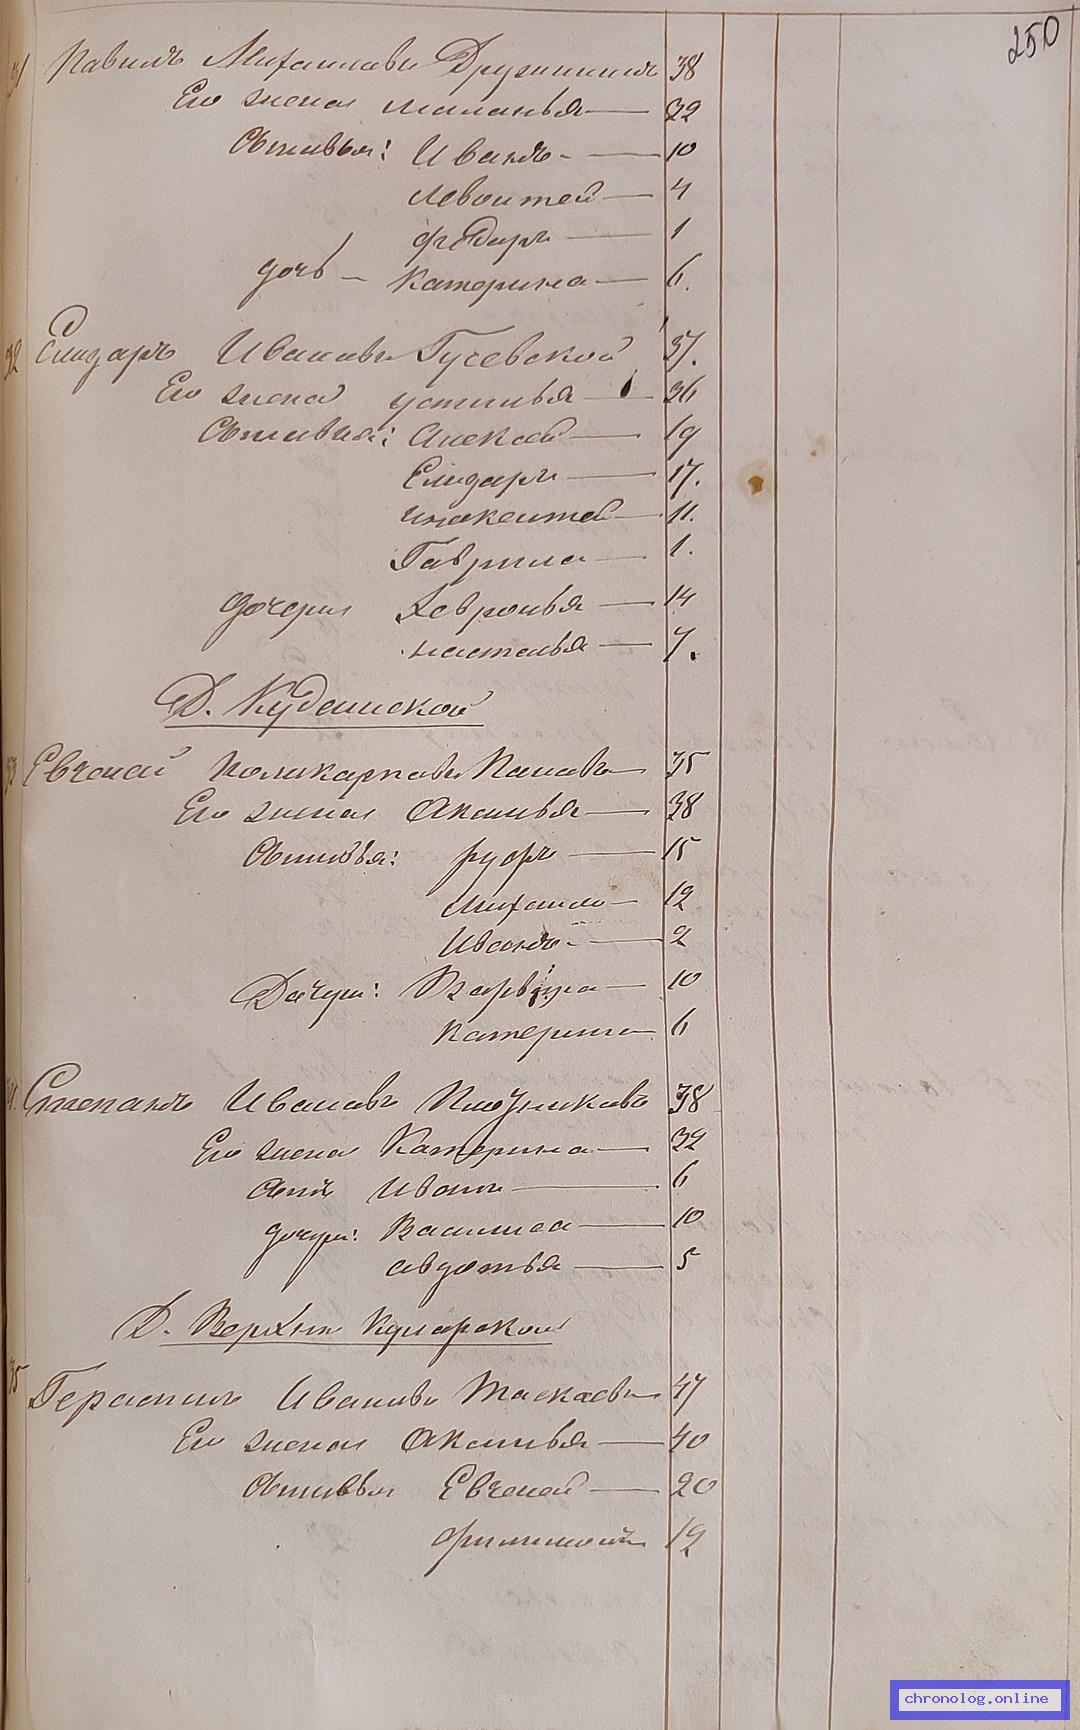 250
31 Павилъ Михаилавъ Дружининъ 38
Его жена маланья 32
Сыновья: Иванъ 10
Левонтей 4
фёдаръ 1
дочь - Катерина 6.
32 Елизаръ Ивановъ Гусевской 37.
Его жена устинья 36
Сыновья: Алексей 19
Елизаръ 17.
Инокентей 11.
Гаврила 1.
дочери Хевронья 14
наталья 7.
Д. Кударинской
33 Евгеней Поликарповъ Пановъ 35
Его жена Аксинья 38
Сыновья: 15
Михаило 12
Иванъ 2
Дочери: Варвара 10
Катерина 6
Степанъ Ивановъ 38
Его жена Катерина 32
сынъ Иванъ 6
дочери: Василиса 10
авдотья 5
Д. Верхне
35 Герасимъ Ивановъ Таскаевъ 47
Его жена Аксинья 40
Сыновья Евгеней 20
филимонъ 12
chronolog.online